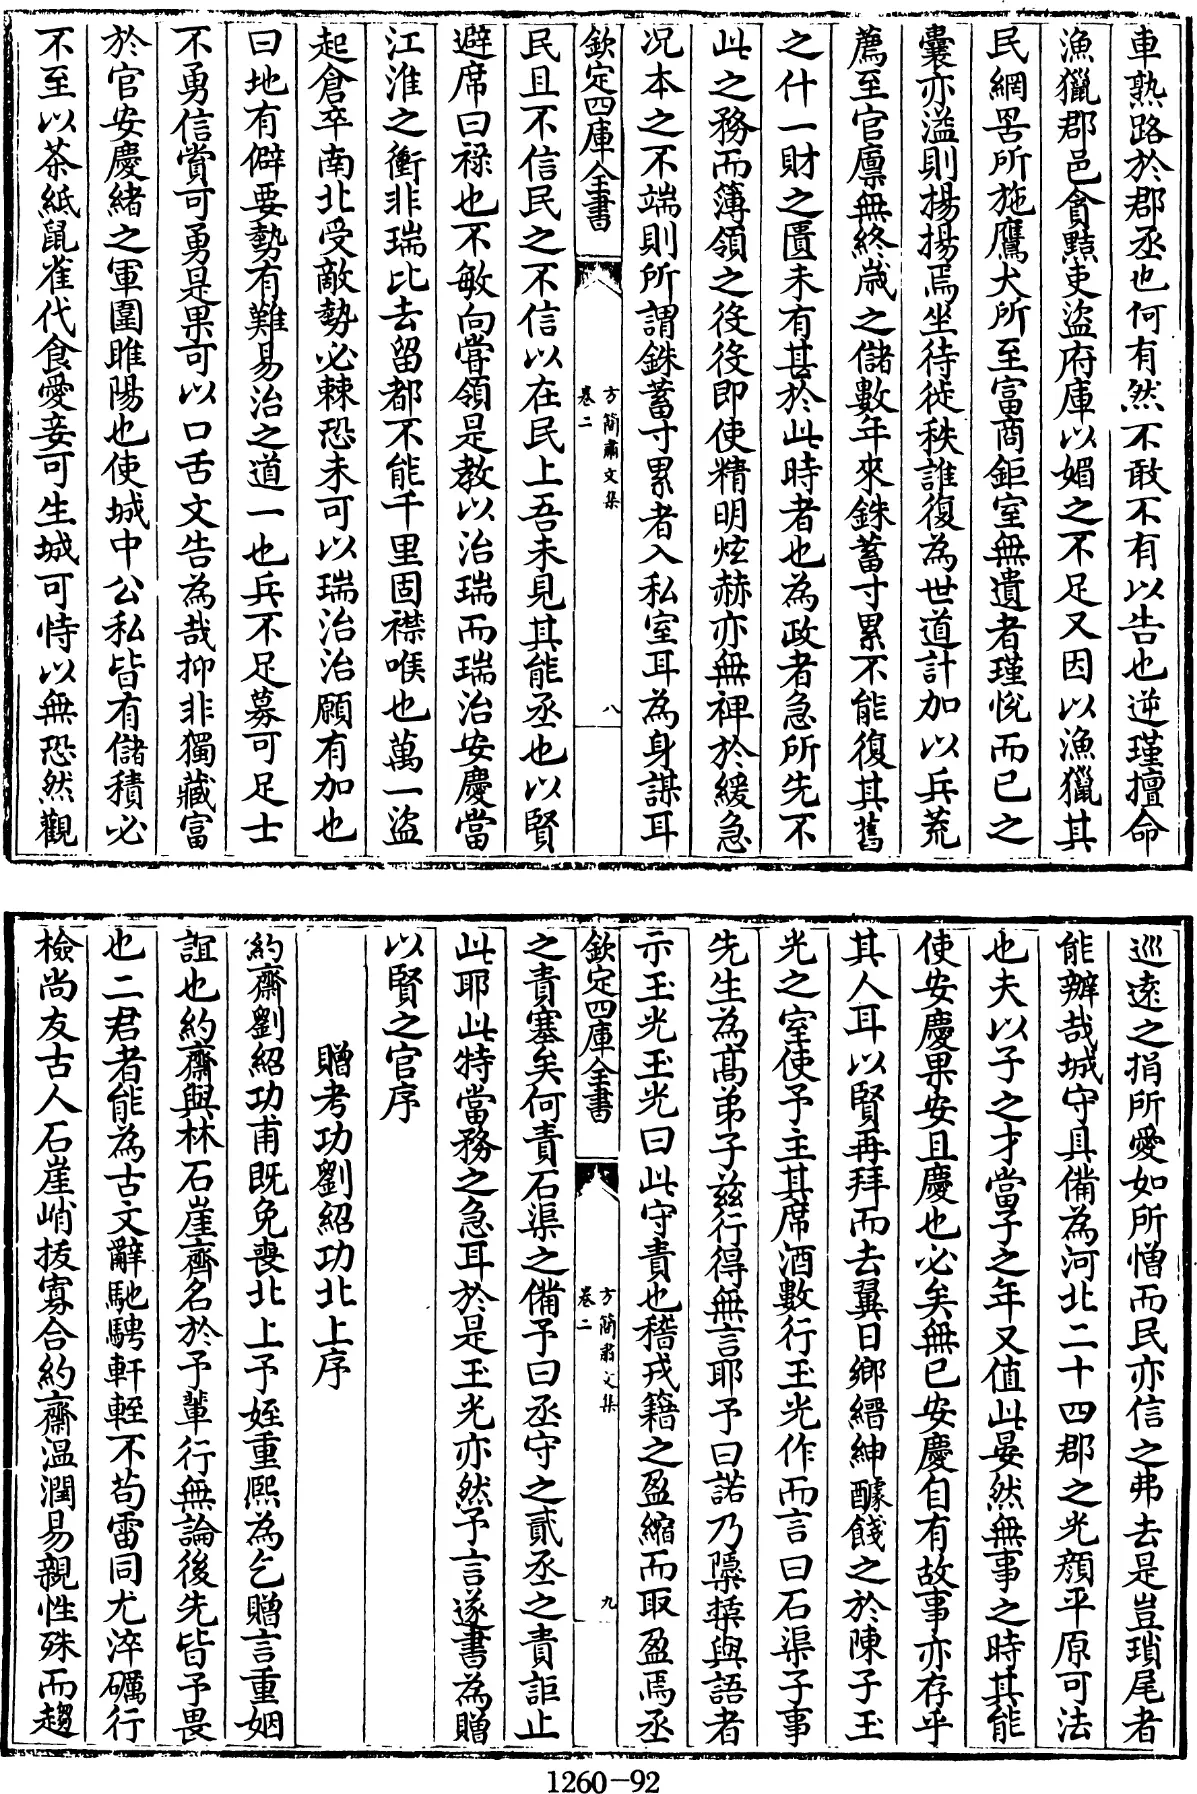 車熟路於郡丞也何有然不敢不有以告也逆瑾擅命
漁獵郡邑貪黠吏盜府庫以媚之不足又因以漁獵其
民網罟所施鷹犬所至富商鉅室無遺者瑾悅而已之
囊亦溢則揚揚焉坐待徙秩誰復為世道計加以兵荒
薦至官廪無終歲之儲數年來銖蓄寸累不能復其舊
之什一財之匱未有甚於此時者也為政者急所先不
此之務而簿領之役役即使精明炫赫亦無裨於緩急
况本之不端則所謂銖蓄寸累者入私室耳為身謀耳
欽定四庫全書
方簡肅文集
卷二
八
民且不信民之不信以在民上吾未見其能丞也以賢
避席曰禄也不敏向嘗領是教以治瑞而瑞治安慶當
江淮之衝非瑞比去留都不能千里固襟喉也萬一盜
起倉卒南北受敵勢必棘恐未可以瑞治治願有加也
曰地有僻要勢有難易治之道一也兵不足募可足士
不勇信賞可勇是果可以口舌文告為哉抑非獨藏富
於官安慶緒之軍圍睢陽也使城中公私皆有儲積必
不至以茶紙鼠雀代食愛妾可生城可恃以無恐然觀
巡遠之捐所愛如所憎而民亦信之弗去是豈瑣尾者
能辦哉城守具備為河北二十四郡之光顏平原可法
也夫以子之才當子之年又值此晏然無事之時其能
使安慶果安且慶也必矣無已安慶自有故事亦存乎
其人耳以賢再拜而去翼日鄉縉紳醵餞之於陳子玉
光之室使予主其席酒數行玉光作而言曰石渠子事
先生為髙弟子兹行得無言耶予曰諾乃櫽括與語者
示玉光玉光曰此守責也稽戎籍之盈縮而取盈焉丞
欽定四庫全書
方簡肅文集
卷二
九
之責塞矣何責石渠之備予曰丞守之貳丞之責詎止
此耶此特當務之急耳於是玉光亦然予言遂書為贈
以賢之官序
贈考功劉紹功北上序
約齋劉紹功甫既免喪北上予姪重熙為乞贈言重姻
誼也約齋與林石崖齊名於予輩行無論後先皆予畏
也二君者能為古文辭馳騁軒輊不苟雷同尤淬礪行
檢尚友古人石崖峭拔寡合約齋温潤易親性殊而趨
1260-92